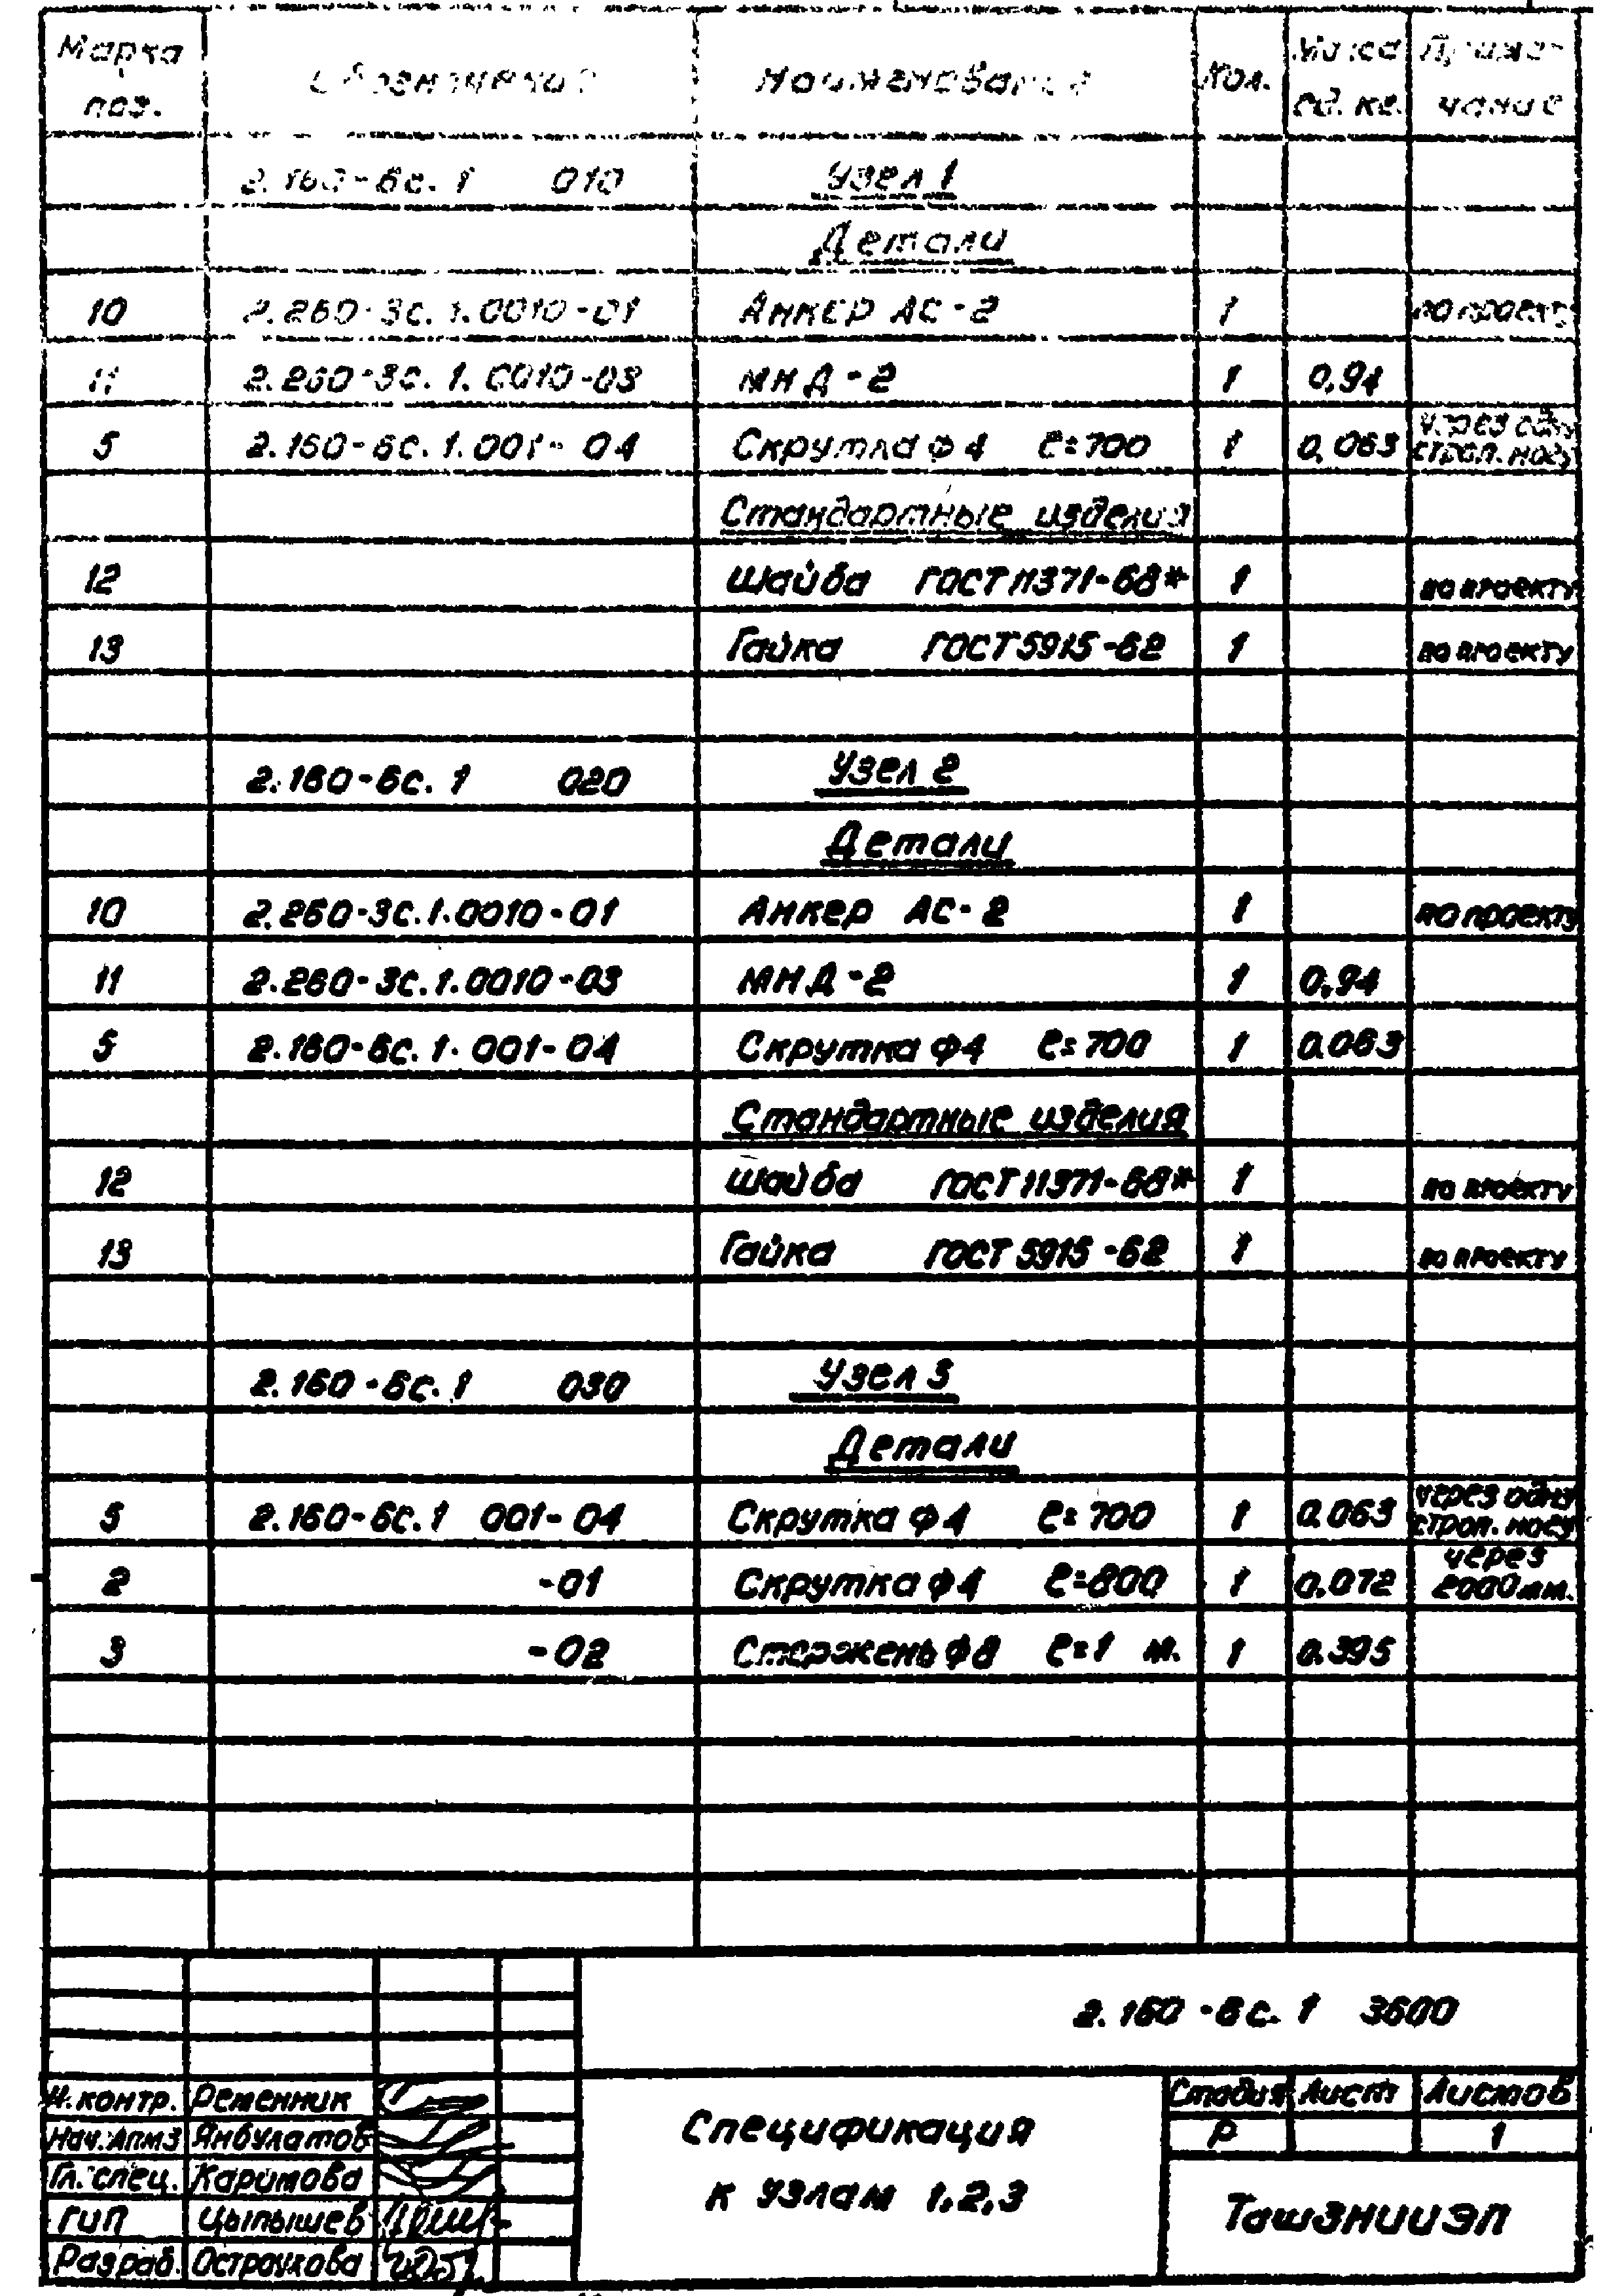 Марка поз. Обозначение Наименование Кол. Масса ед. кг. Примечание
2.160-6с. 1 010 Узел 1
Детали
10 2.260-3с.1.0010-01 Анкер АС-2 1 по проекту
11 2.260-3с.1.0010-03 МНД-2 1 0,94
5 2.160-6с.1.001-04 Скрутка ф4 ℓ=700 1 0,063 через одну строп. ногу
Стандартные изделия
12 Шайба ГОСТ 11371-68* 1 по проекту
13 Гайка ГОСТ 5915-62 1 по проекту
2.160-6с. 1 020 Узел 2
Детали
10 2.260-3с.1.0010-01 Анкер АС-2 1 по проекту
11 2.260-3с.1.0010-03 МНД-2 1 0,94
5 2.160-6с.1.001-04 Скрутка ф4 ℓ=700 1 0.063
Стандартные изделия
12 Шайба ГОСТ 11371-68* 1 по проекту
13 Гайка ГОСТ 5915-62 1 по проекту
2.160-6с.1 030 Узел 3
Детали
5 2.160-6с.1 001-04 Скрутка ф4 ℓ=700 1 0.063 через одну строп. ногу
2 -01 Скрутка ф4 ℓ=800 1 0.072 через 2000мм.
3 -02 Стержень ф8 ℓ=1 м. 1 0.395
2.160-6с. 1 3600
Н.контр. Ременник
Нач.Апм3 Янбулатов
Гл. спец. Каримова
ГИП Цыпышев
Разраб. Остроухова
Спецификация
к узлам 1,2,3
Стадия Лист Листов
Р 1
ТашЗНИИЭП